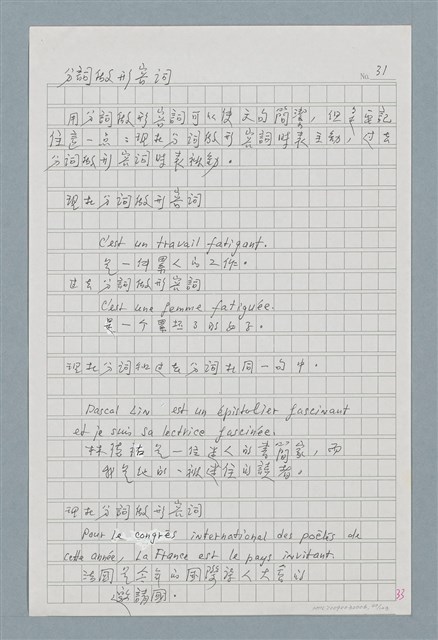 No. 31
分詞做形容词
用分詞做形容詞可以使文句簡潔，但多重記
住這一点：现在分詞做形容詞時表主動，过去
分詞做形容詞時表被動。
现在分词做形容词
C'est un travail fatigant.
是一件累人的工作。
过去分詞做形容詞
C'est une femme fatiguée.
是一个累坏了的女子。
现在分词和过去分词在同一句中。
Pascal Lin est un épistolier fascinant
et je suis sa lectrice fascinée.
林 是一位迷人的書簡家，而
我是他的一被迷住的讀者。
现在分詞做形容詞
Pour le congrès international des poètes de
cette année, la France est le pays invitant.
法國是今年的國際詩人大會的
邀請國。
33